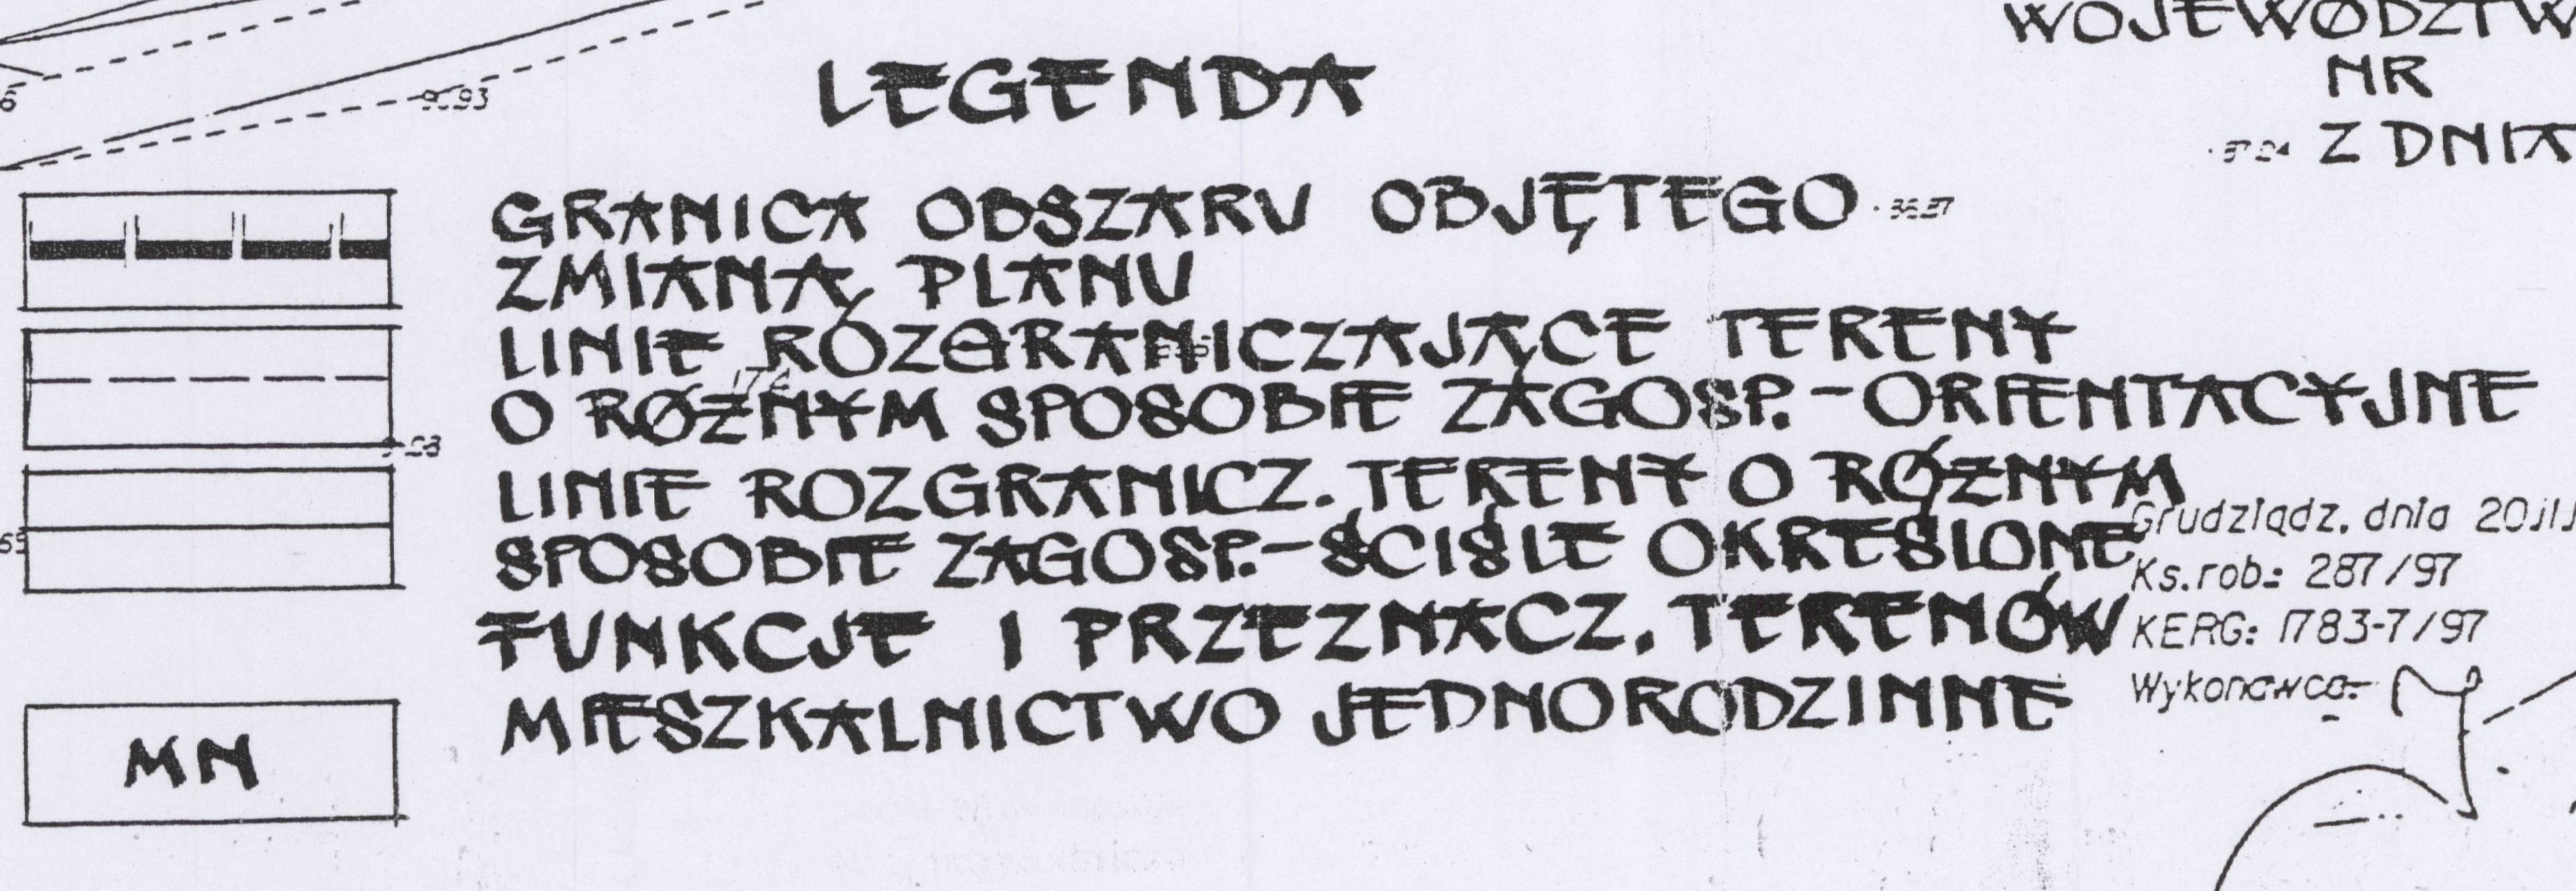 LEGENDA
GRANICA OBSZARU OBJĘTEGO
ZMIANĄ PLANU
LINIE ROZGRANICZAJĄCE TERENY
O RÓŻNYM SPOSOBIE ZAGOSP.-ORIENTACYJNE
LINIE ROZGRANICZ. TERENY O RÓŻNYM
SPOSOBIE ZAGOSP.-ŚCIŚLE OKREŚLONE
FUNKCJE I PRZEZNACZ. TERENÓW
MN
MIESZKALNICTWO JEDNORODZINNE
WOJEWÓDZTW
NR
Z DNIA
Grudziądz, dnia
Ks.rob.: 287/97
KERG: 1783-7/97
Wykonawca: